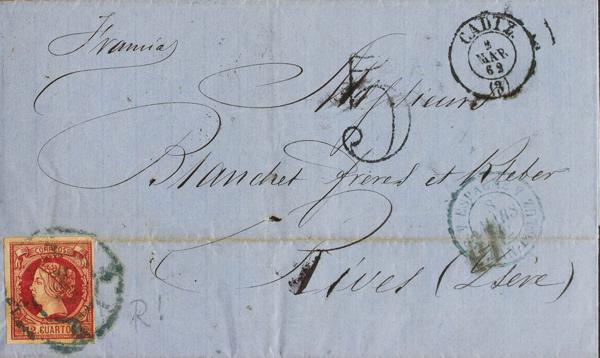 Francia
CADIZ
2
MAR.
62
(3)
Messieurs
Blanchet frères et Kleber
ESPAGNE
8
MARS
Rives (Isère)
CORREOS
12 CUARTOS
R